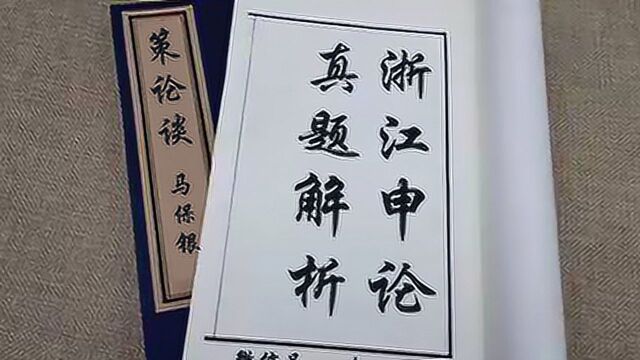 浙江申论
真题解析
策论谈
马保银
微信号